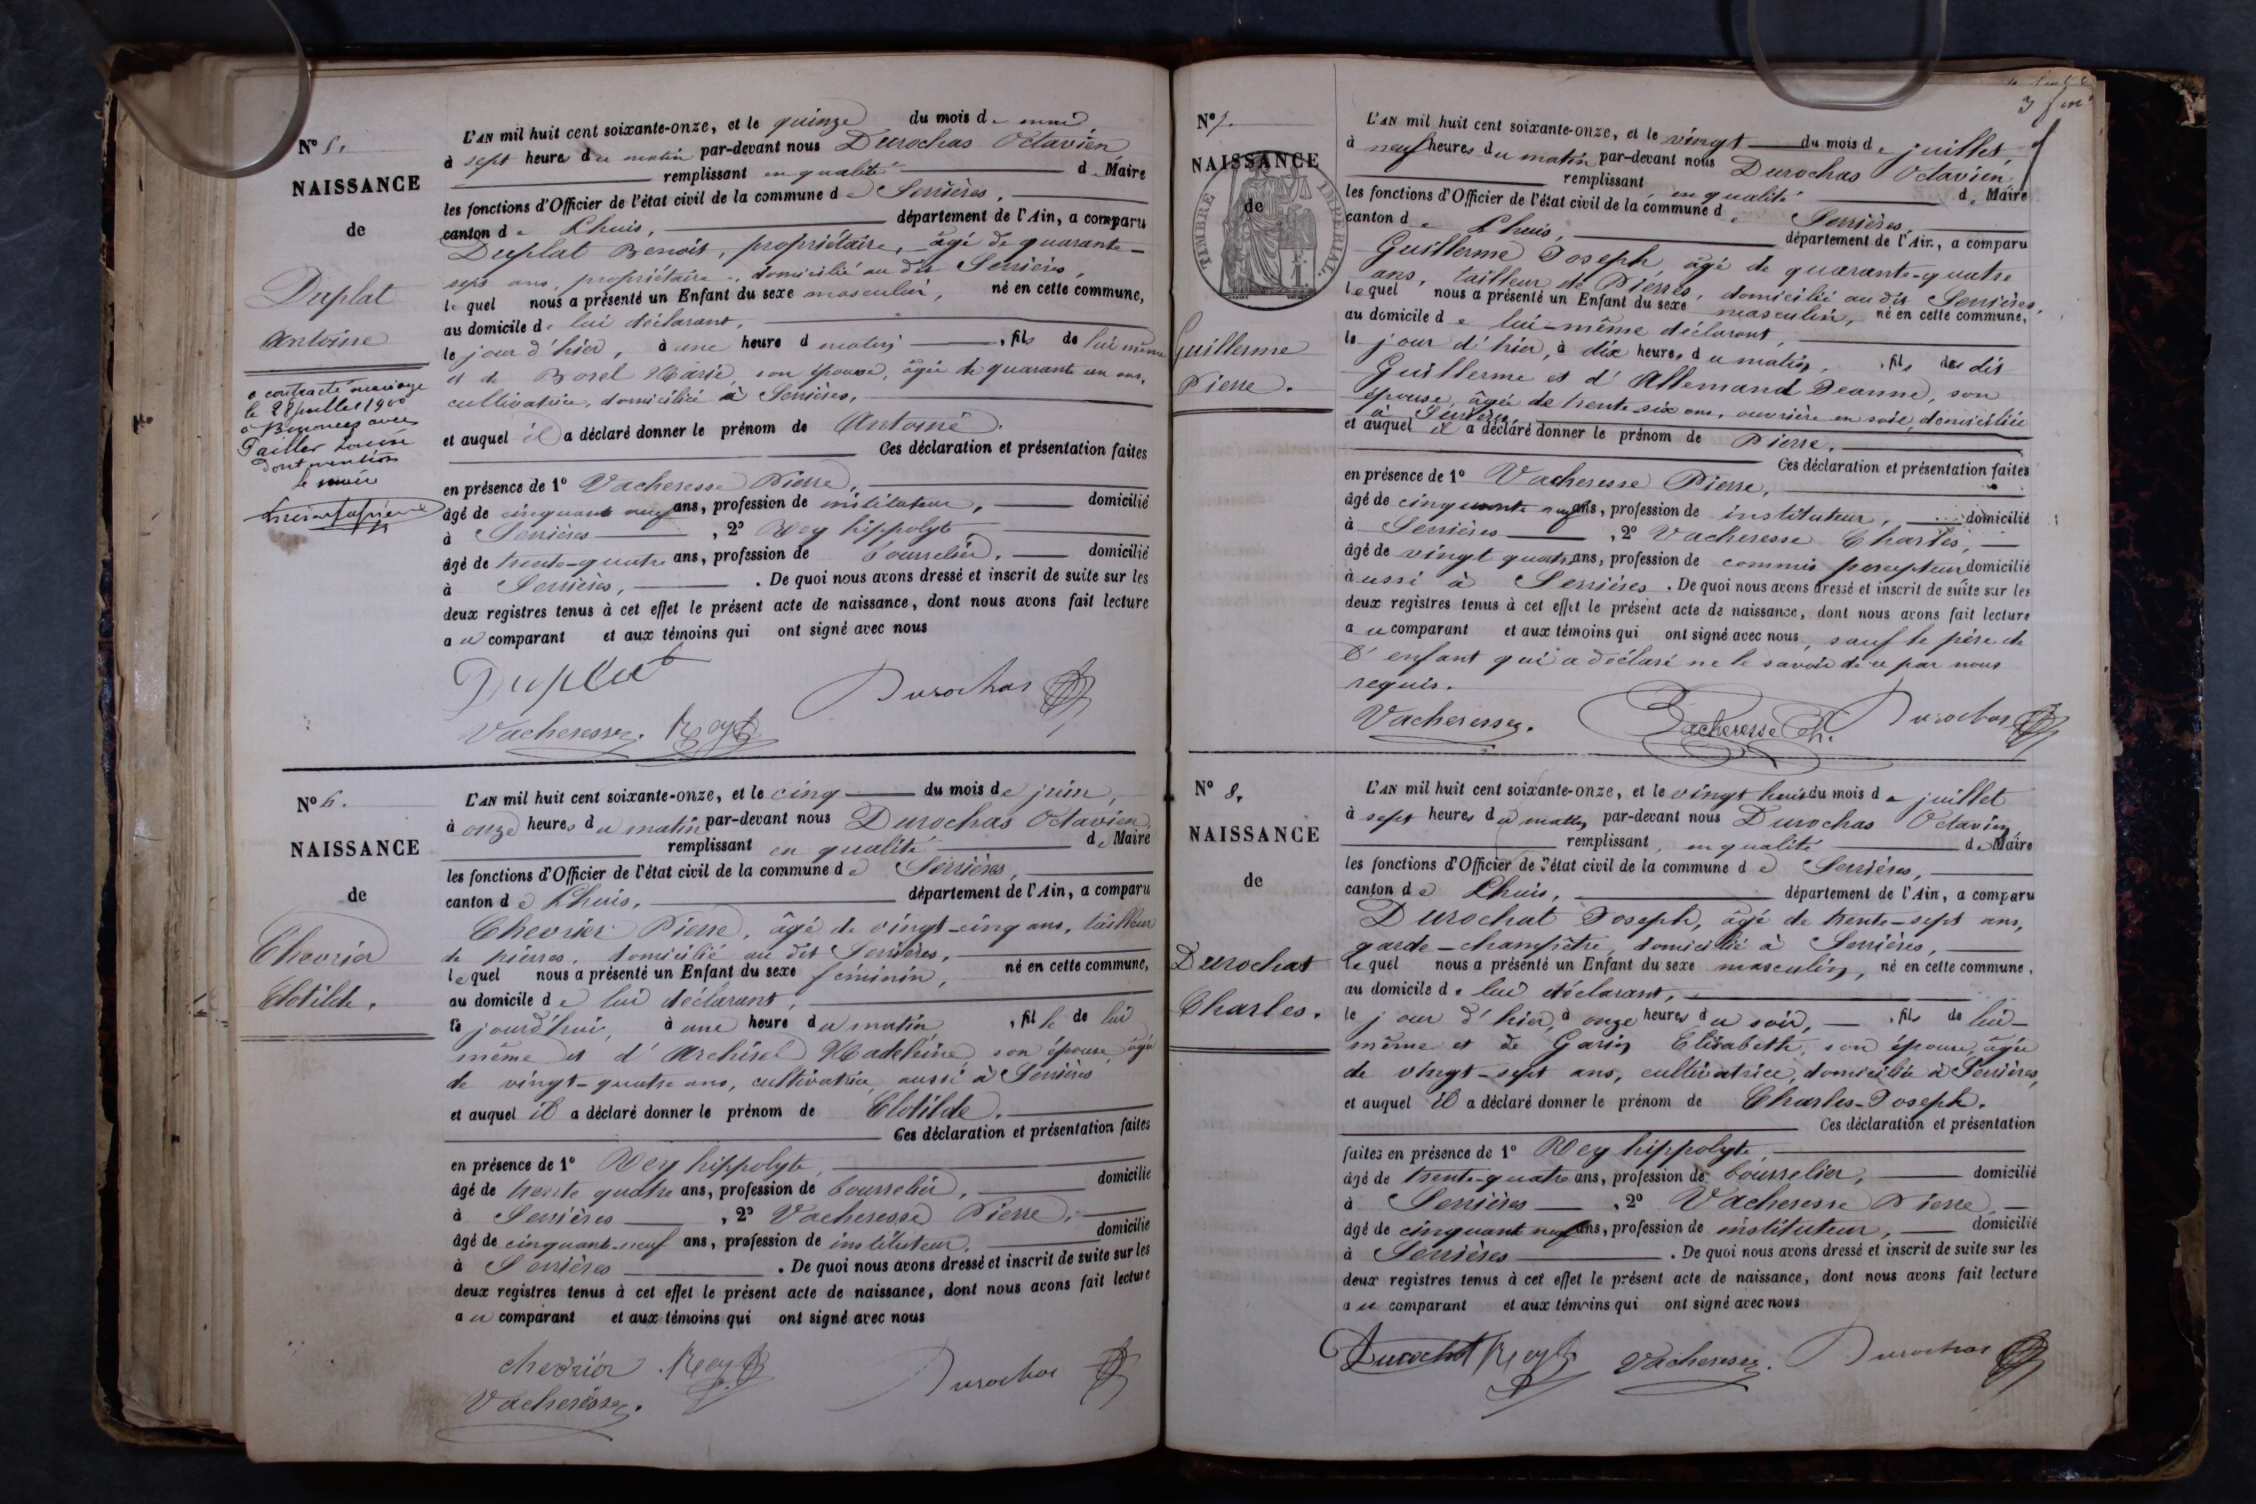 N° 5.
NAISSANCE
de
Duplat
Antoine
a contracté mariage
le 28 juillet 1900
à avec
dont mention
le maire
L'AN mil huit cent soixante-onze, et le quinze du mois de mai
à sept heures du matin par-devant nous Durochas Octavien
remplissant en qualité de Maire
les fonctions d'Officier de l'état civil de la commune de Serrières,
canton de Lhuis, département de l'Ain, a comparu
Duplat Benoit, propriétaire, âgé de quarante-
sept ans, propriétaire, domicilié au dit Serrières,
lequel nous a présenté un Enfant du sexe masculin, né en cette commune,
au domicile de lui déclarant,
le jour d'hier, à une heure d matin, fils de lui même
et de Borel Marie, son épouse, âgée de quarante un ans,
cultivatrice, domiciliée à Serrières,
et auquel il a déclaré donner le prénom de Antoine.
Ces déclaration et présentation faites
en présence de 1° Vacheresse Pierre,
âgé de cinquante neuf ans, profession de instituteur, domicilié
à Serrières, 2° Rey hippolyte
âgé de trente-quatre ans, profession de bourrelier, domicilié
à Serrières, . De quoi nous avons dressé et inscrit de suite sur les
deux registres tenus à cet effet le présent acte de naissance, dont nous avons fait lecture
au comparant et aux témoins qui ont signé avec nous
Duplat
Durochas
Vacheresse. Rey h
N° 6.
NAISSANCE
de
Chevrier
Clotilde.
L'AN mil huit cent soixante-onze, et le cinq du mois de juin,
à onze heures du matin par-devant nous Durochas Octavien,
remplissant en qualité de Maire
les fonctions d'Officier de l'état civil de la commune de Serrières,
canton de Lhuis, département de l'Ain, a comparu
Chevrier Pierre, âgé de vingt-cinq ans, tailleur
de pierres, domicilié au dit Serrières,
lequel nous a présenté un Enfant du sexe féminin, né en cette commune,
au domicile de lui déclarant,
le jourd'hui, à une heure du matin, fille de lui
même et d'Archirel Madeleine son épouse, âgée
de vingt-quatre ans, cultivatrice, aussi à Serrières
et auquel il a déclaré donner le prénom de Clotilde.
Ces déclaration et présentation faites
en présence de 1° Rey hippolyte,
âgé de trente quatre ans, profession de bourrelier, domicilié
à Serrières, 2° Vacheresse Pierre,
âgé de cinquante-neuf ans, profession de instituteur, domicilié
à Serrières . De quoi nous avons dressé et inscrit de suite sur les
deux registres tenus à cet effet le présent acte de naissance, dont nous avons fait lecture
au comparant et aux témoins qui ont signé avec nous
chevrier . Rey h
Durochas
Vacheresse.
N° 7.
NAISSANCE
de
TIMBRE IMPÉRIAL
Guillerme
Pierre.
L'AN mil huit cent soixante-onze, et le vingt du mois de juillet,
à neuf heures du matin par-devant nous Durochas Octavien
remplissant, en qualité de Maire
les fonctions d'Officier de l'état civil de la commune de Serrières,
canton de Lhuis, département de l'Ain, a comparu
Guillerme Joseph, âgé de quarante-quatre
ans, tailleur de Pierres, domicilié au dit Serrières,
lequel nous a présenté un Enfant du sexe masculin, né en cette commune,
au domicile de lui-même déclarant,
le jour d'hier, à dix heures du matin, fils des dit
Guillerme et d'Allemand Jeanne, son
épouse, âgée de trente-six ans, ouvrière en soie, domiciliée
à Serrières,
et auquel il a déclaré donner le prénom de Pierre.
Ces déclaration et présentation faites
en présence de 1° Vacheresse Pierre,
âgé de cinquante neuf ans, profession de instituteur, domicilié
à Serrières, 2° Vacheresse Charles,
âgé de vingt quatre ans, profession de commis percepteur domicilié
aussi à Serrières . De quoi nous avons dressé et inscrit de suite sur les
deux registres tenus à cet effet le présent acte de naissance, dont nous avons fait lecture
au comparant et aux témoins qui ont signé avec nous, sauf le père de
l'enfant qui a déclaré ne le savoir de ce par nous
requis.
Vacheresse. Vacheresse Ch. Durochas
N° 8.
NAISSANCE
de
Durochat
Charles.
L'AN mil huit cent soixante-onze, et le vingt huit du mois de juillet
à sept heures du matin par-devant nous Durochas Octavien
remplissant, en qualité de Maire
les fonctions d'Officier de l'état civil de la commune de Serrières,
canton de Lhuis, département de l'Ain, a comparu
Durochat Joseph, âgé de trente-sept ans,
garde-champêtre, domicilié à Serrières,
lequel nous a présenté un Enfant du sexe masculin, né en cette commune,
au domicile de lui déclarant,
le jour d'hier, à onze heures du soir, fils de lui-
même et de Garin Elisabeth, son épouse, âgée
de vingt-sept ans, cultivatrice, domiciliée à Serrières,
et auquel il a déclaré donner le prénom de Charles-Joseph.
Ces déclaration et présentation
faites en présence de 1° Rey hippolyte,
âgé de trente-quatre ans, profession de bourrelier, domicilié
à Serrières, 2° Vacheresse Pierre,
âgé de cinquante neuf ans, profession de instituteur, domicilié
à Serrières . De quoi nous avons dressé et inscrit de suite sur les
deux registres tenus à cet effet le présent acte de naissance, dont nous avons fait lecture
au comparant et aux témoins qui ont signé avec nous
Durochat Rey h Vacheresse. Durochas